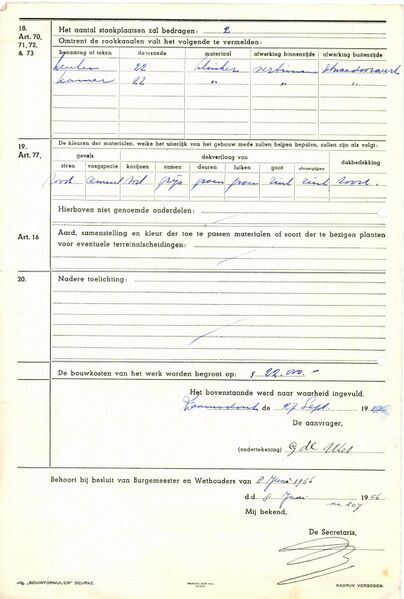 18.
Art. 70,
71, 72,
& 73
Het aantal stookplaatsen zal bedragen: 2
Omtrent de rookkanalen valt het volgende te vermelden:
benaming of teken doorsnede materiaal afwerking binnenzijde afwerking buitenzijde
keuken 22 klinker vertinnen
kamer 22 " " "
19.
Art. 77,
De kleuren der materialen, welke het uiterlijk van het gebouw mede zullen helpen bepalen, zullen zijn als volgt:
gevels dekverflaag van dakbedekking
steen voegspecie kozijnen ramen deuren luiken goot afvoerpijpen
rood cement wit grijs groen groen zink zink rood.
Hierboven niet genoemde onderdelen:
Art. 16
Aard, samenstelling en kleur der toe te passen materialen of soort der te bezigen planten
voor eventuele terreinafscheidingen:
20.
Nadere toelichting:
De bouwkosten van het werk worden begroot op: f 22.000.-
Het bovenstaande werd naar waarheid ingevuld.
de 27 Sept. 19
De aanvrager,
(ondertekening) G de Wit
Behoort bij besluit van Burgemeester en Wethouders van 8 Juni 1956
d.d. 8 Juni 1956
no. 207
Mij bekend,
De Secretaris,
uitg. „BOUWFORMULIER" DEURNE.
NADRUK VERBODEN.